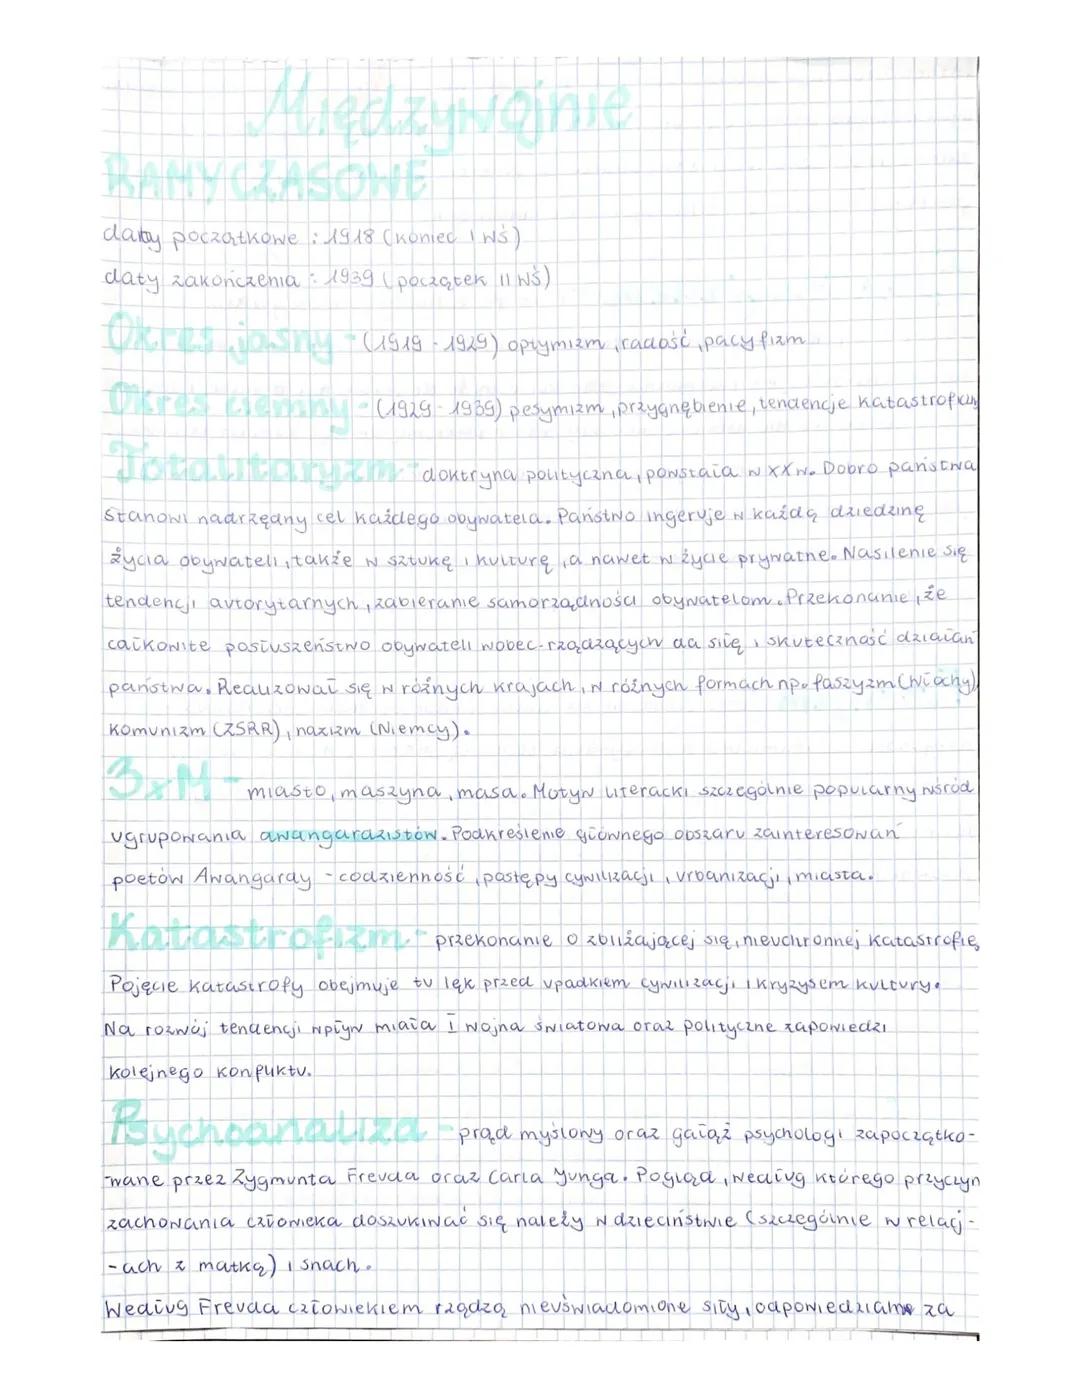 Międzywojnie
RAMY CZASOWE
daty początkowe : 1918 (koniec I WŚ)
daty zakończenia : 1939 (początek II WŚ)
Okres jasny - (1919 - 1929) optymizm, radość, pacyfizm
Okres ciemny - (1929 - 1939) pesymizm, przygnębienie, tendencje katastroficzn
Totalitaryzm - doktryna polityczna, powstała w XX w. Dobro państwa
stanowi nadrzędny cel każdego obywatela. Państwo ingeruje w każdą dziedzinę
życia obywateli, także w sztukę i kulturę, a nawet w życie prywatne. Nasilenie się
tendencji autorytarnych, zabieranie samorządności obywatelom. Przekonanie, że
całkowite posłuszeństwo obywateli wobec rządzących da siłę i skuteczność działań
państwa. Realizował się w różnych krajach, w różnych formach np. faszyzm (Włochy),
komunizm (ZSRR), nazizm (Niemcy).
3xM - miasto, maszyna, masa. Motyw literacki szczególnie popularny wśród
ugrupowania awangardzistów. Podkreślenie głównego obszaru zainteresowań
poetów Awangardy - codzienność, postępy cywilizacji, urbanizacji, miasta.
Katastrofizm - przekonanie o zbliżającej się, nieuchronnej katastrofie,
Pojęcie katastrofy obejmuje tu lęk przed upadkiem cywilizacji i kryzysem kultury.
Na rozwój tendencji wpływ miała I wojna światowa oraz polityczne zapowiedzi
kolejnego konfliktu.
Psychoanaliza - prąd myślowy oraz gałąź psychologi zapoczątko-
-wane przez Zygmunta Freuda oraz Carla Junga. Pogląd, według którego przyczyn
zachowania człowieka doszukiwać się należy w dzieciństwie (szczególnie w relacj-
-ach z matką) i snach.
Według Freuda człowiekiem rządzą nieuświadomione siły, odpowiedzialne za